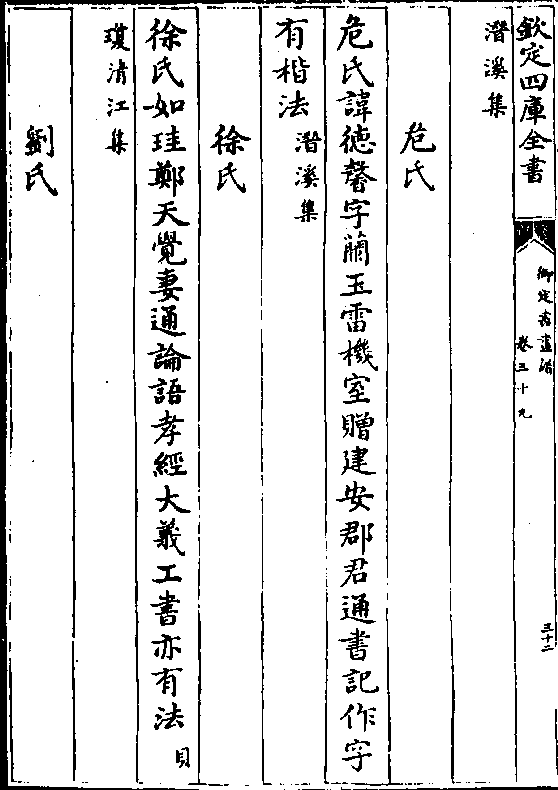 欽定四庫全書
御定書畫譜
卷三十九
三十二
潛溪集
危氏
危氏諱德馨字蘭玉雷機室贈建安郡君通書記作字
有楷法潛溪集
徐氏
徐氏如珪鄭天覺妻通論語孝經大義工書亦有法貝
瓊清江集
劉氏